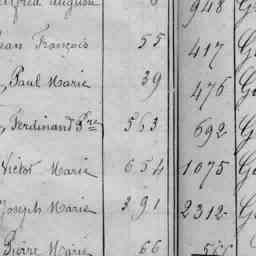 Alfred Auguste 948
Jean François 55 417 G
Paul Marie 39 476 G
Ferdinand Pre 563 692 G
Victor Marie 654 1075 G
Joseph Marie 391 2312 G
Pierre Marie 66 566